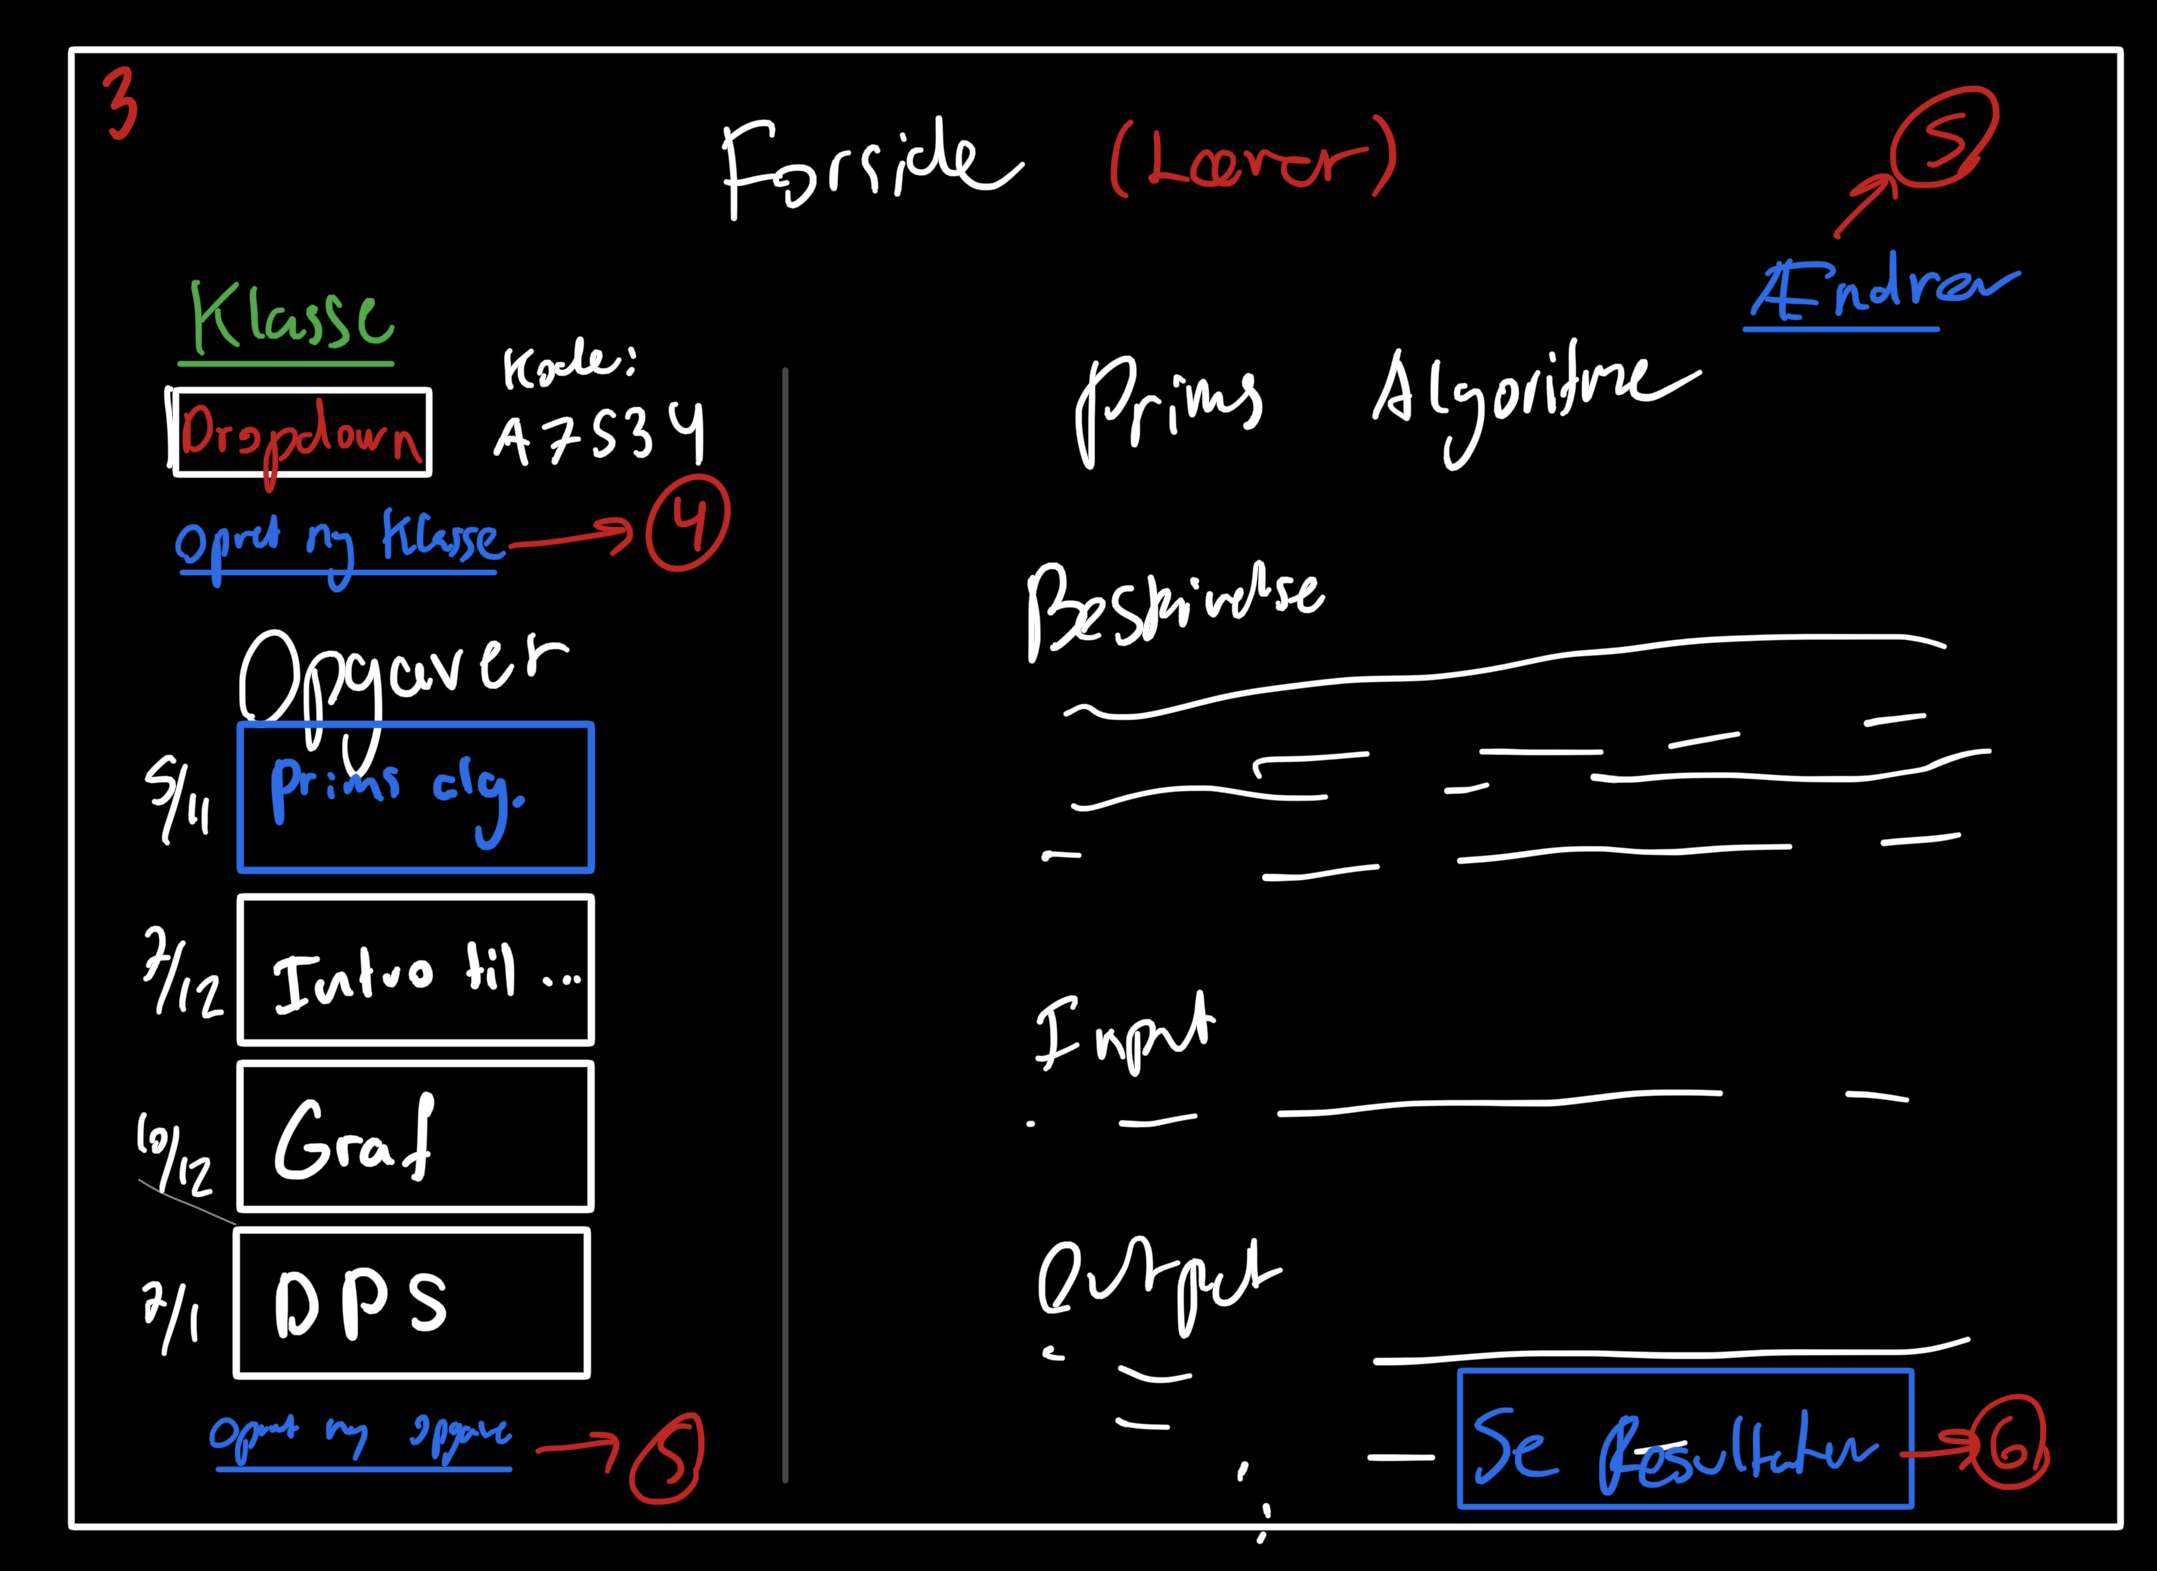 3
Forside (Lærer)
5
Ændrer
Klasse
Kode:
A7534
Dropdown
Opret ny Klasse → 4
Opgaver
5/11 Prims alg.
7/12 Intro til ...
10/12 Graf
7/1 DPS
Opret ny Opgave → 5
Prims Algoritme
Beskrivelse
Input
Output
Se Resultater → 6